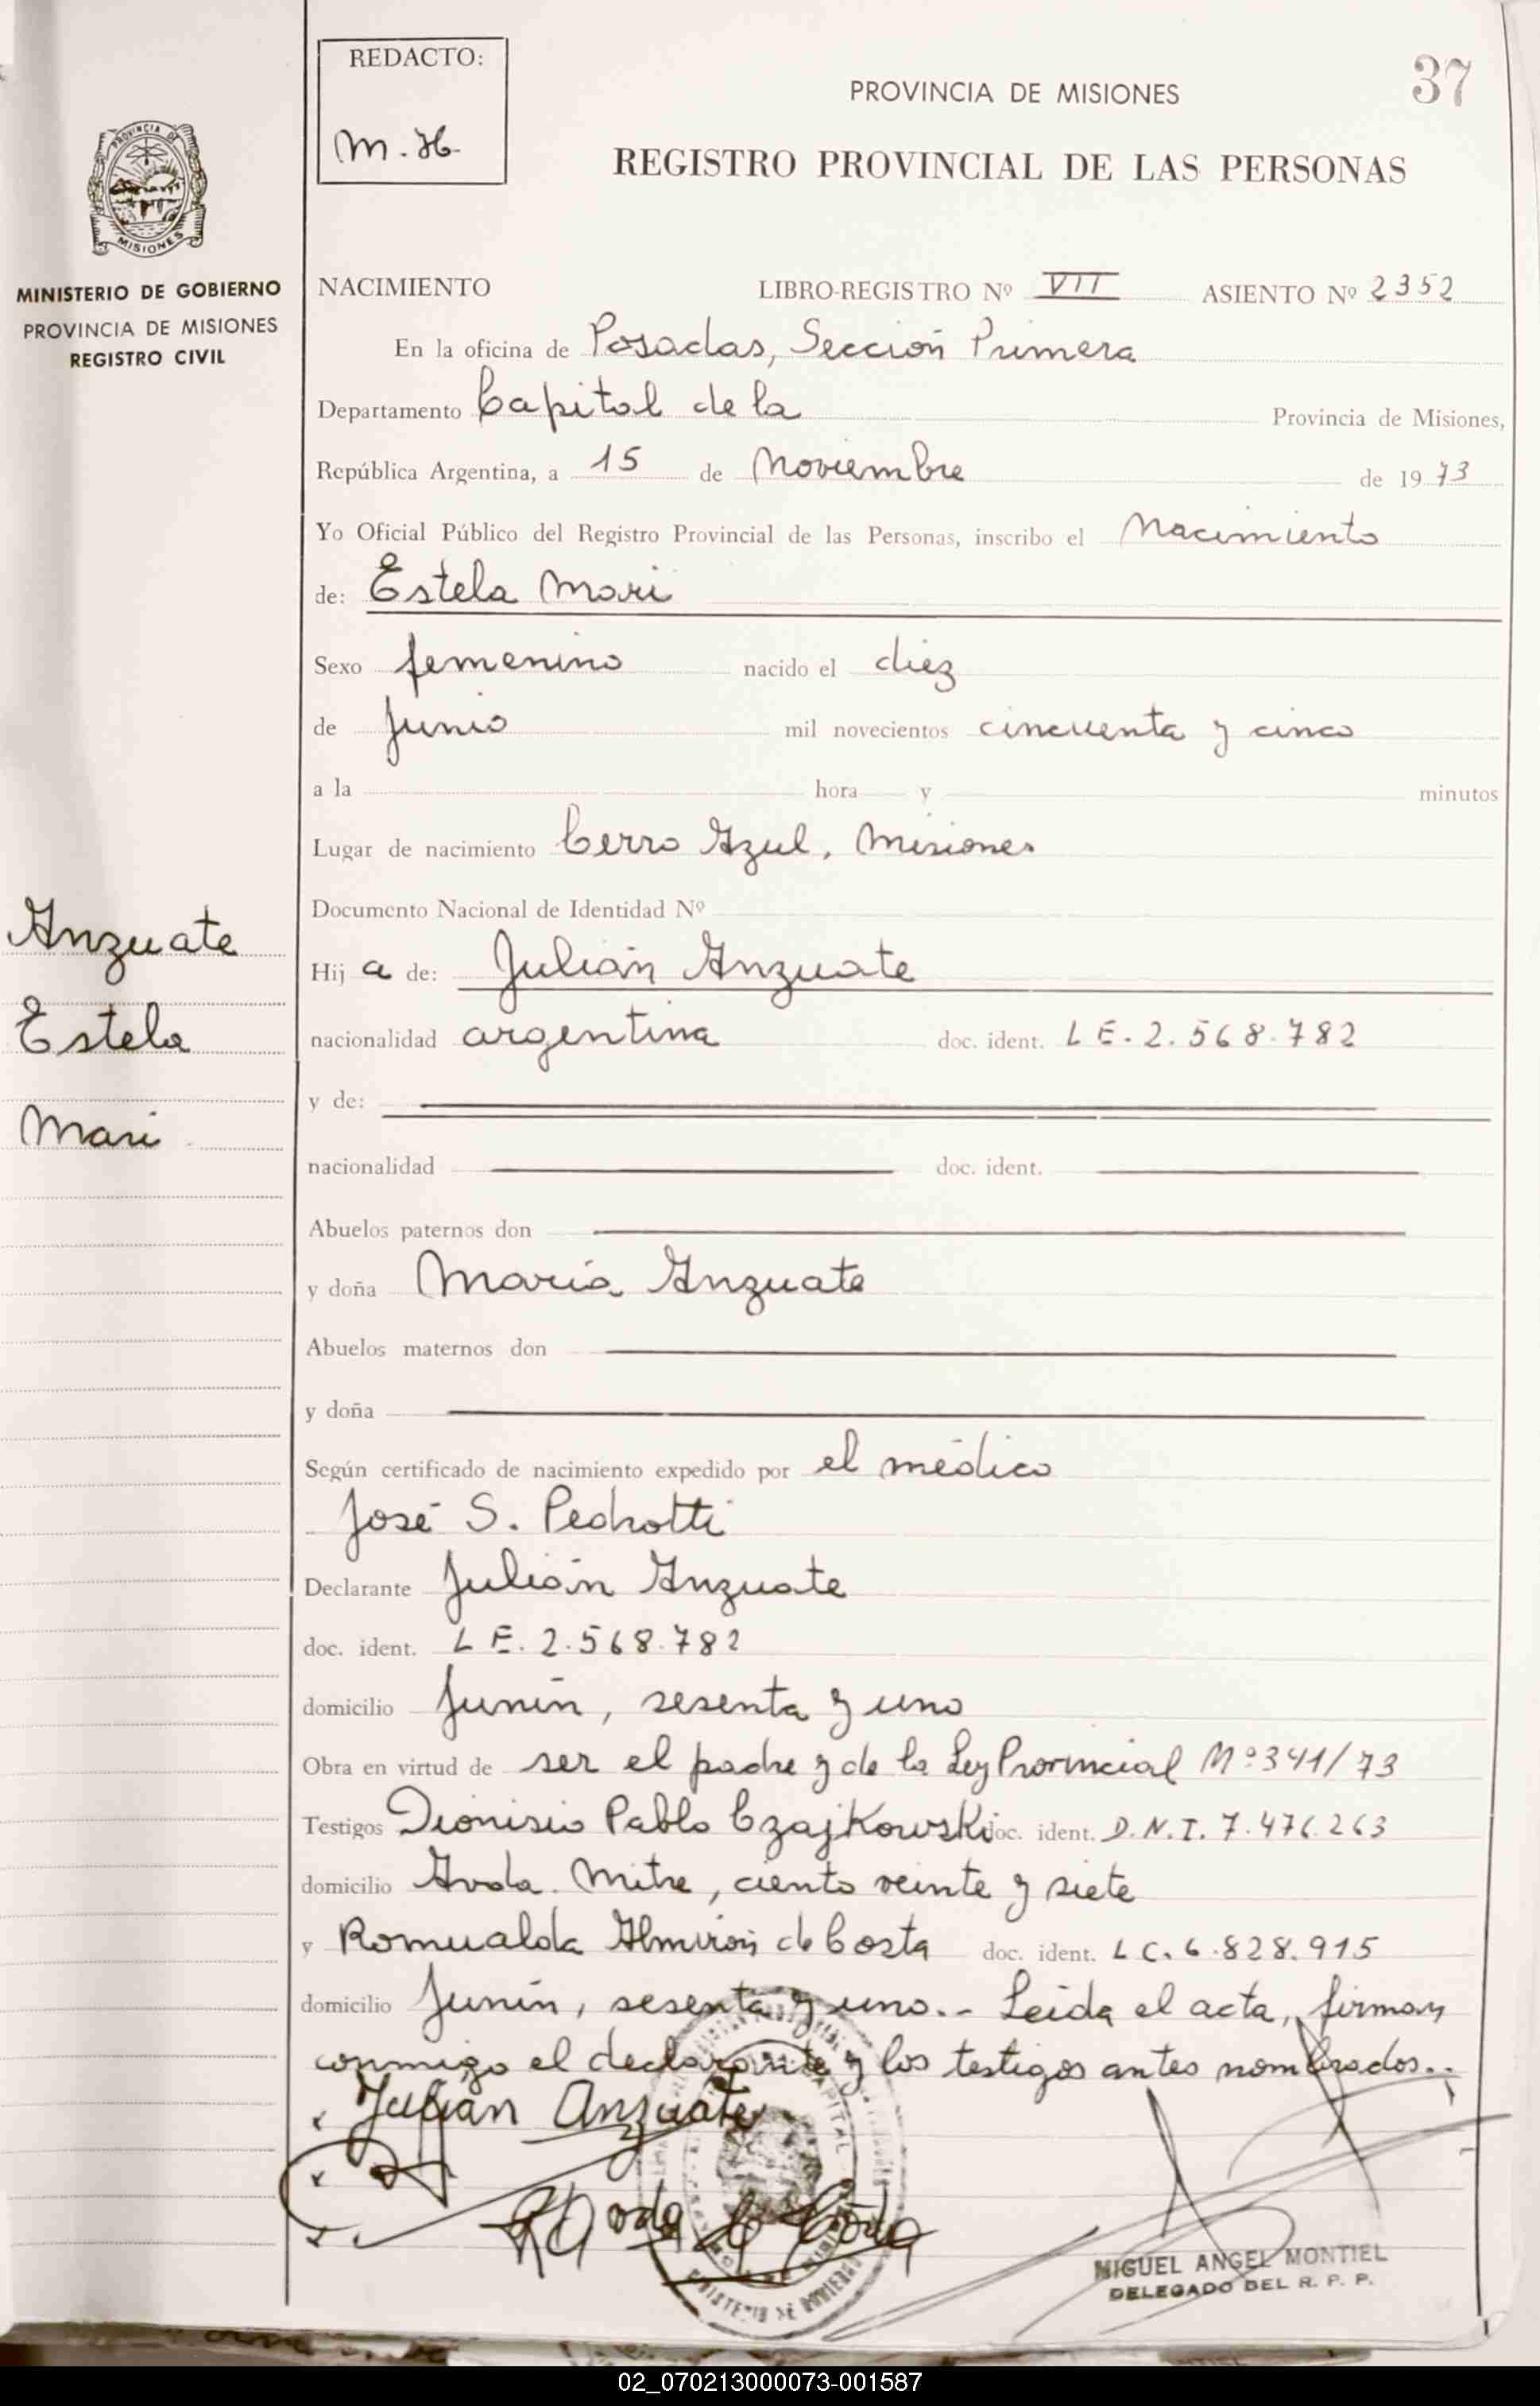 REDACTO:
M. H.
37
PROVINCIA DE MISIONES
REGISTRO PROVINCIAL DE LAS PERSONAS
PROVINCIA DE
MISIONES
MINISTERIO DE GOBIERNO
PROVINCIA DE MISIONES
REGISTRO CIVIL
NACIMIENTO LIBRO-REGISTRO Nº VII ASIENTO Nº 2352
En la oficina de Posadas, Sección Primera
Departamento Capital de la Provincia de Misiones,
República Argentina, a 15 de Noviembre de 1973
Yo Oficial Público del Registro Provincial de las Personas, inscribo el Nacimiento
de: Estela Mari
Sexo femenino nacido el diez
de Junio mil novecientos cincuenta y cinco
a la hora y minutos
Lugar de nacimiento Cerro Azul, Misiones
Documento Nacional de Identidad Nº
Anzuate
Estela
Mari
Hij a de: Julián Anzuate
nacionalidad argentina doc. ident. L E. 2.568.782
y de:
nacionalidad doc. ident.
Abuelos paternos don
y doña María Anzuate
Abuelos maternos don
y doña
Según certificado de nacimiento expedido por el médico
José S. Pedrotti
Declarante Julián Anzuate
doc. ident. L E. 2.568.782
domicilio Junín, sesenta y uno
Obra en virtud de ser el padre y de la Ley Provincial Nº 341/73
Testigos Dionisio Pablo Czajkowski doc. ident. D.N.I. 7.476.263
domicilio Avda. Mitre, ciento veinte y siete
y Romualda Almirón de Costa doc. ident. L C. 6.828.915
domicilio Junín, sesenta y uno.- Leída el acta, firman
conmigo el declarante y los testigos antes nombrados..
Julian Anzuate
MIGUEL ANGEL MONTIEL
DELEGADO DEL R. P. P.
02_070213000073-001587